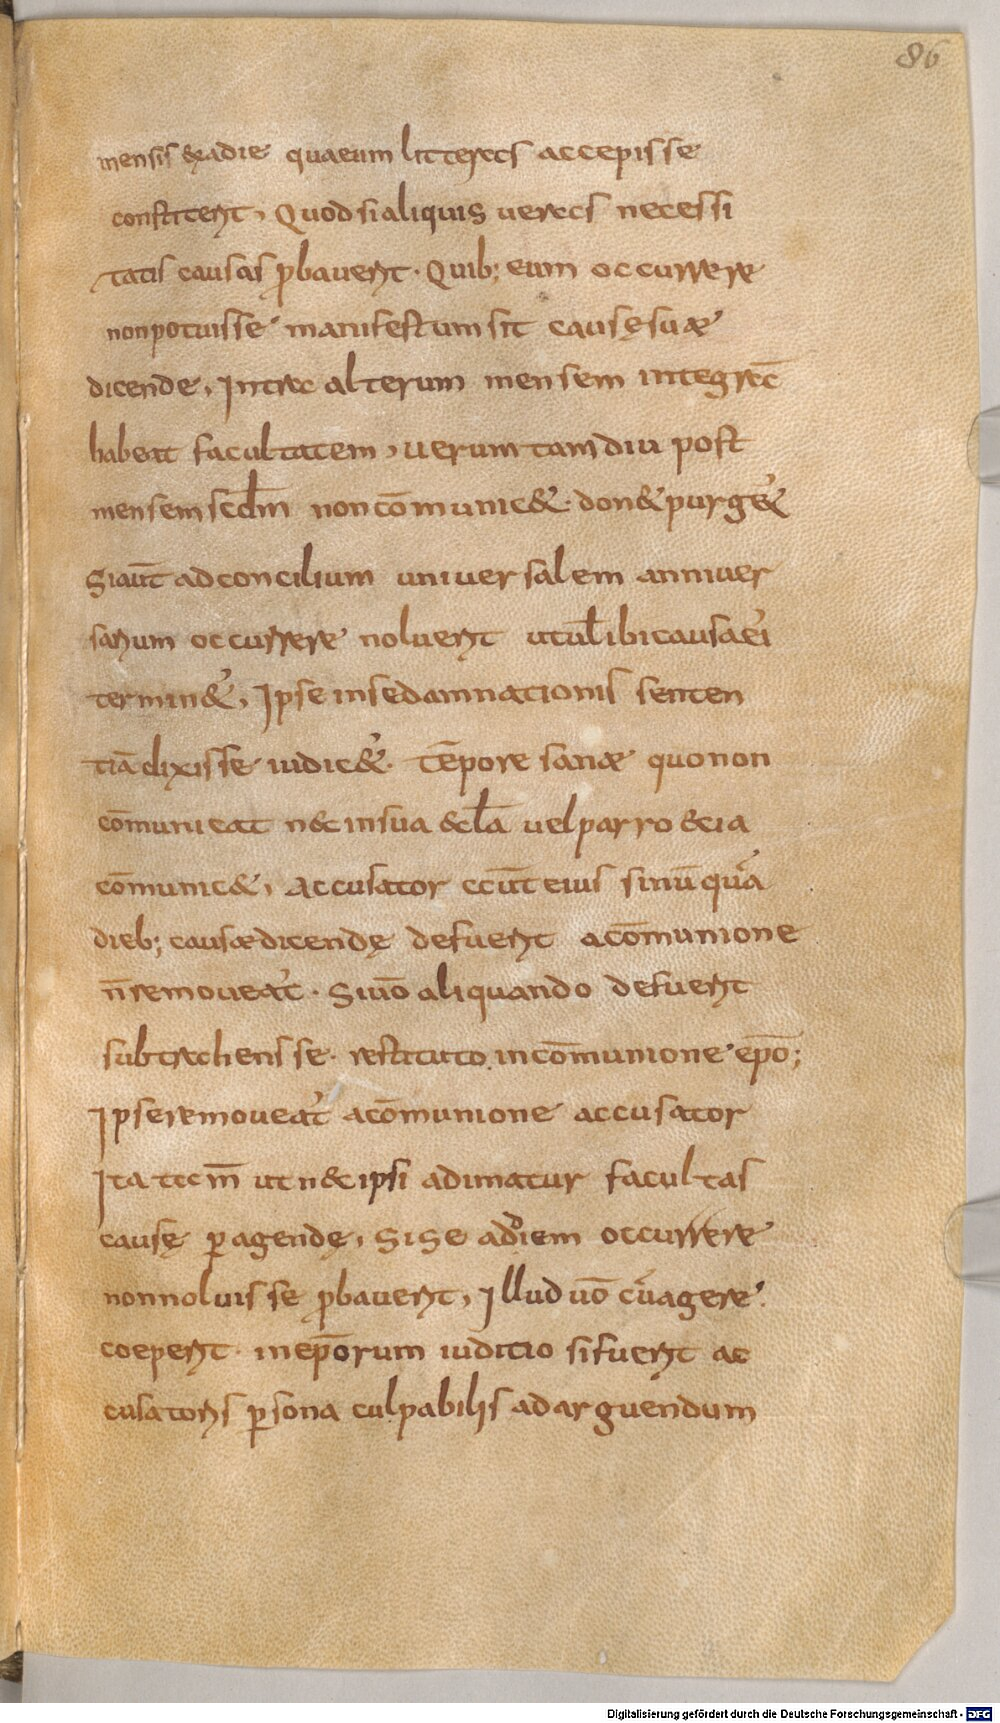 86
mensis &adie quaeum litteras accepisse
constiterit, Quod si aliquis ueras necessi
tatis causas ꝓbauerit. Quib; eum occurrere
non potuisse manifestum sit causę suae
dicende, Intra alterum mensem integrā
habeat facultatem, uerum tamdiu post
mensem scdm̄ non cōmunic&. don& purg&ur
Si aut̄ ad concilium uniuersalem anniuer
sarium occurrere noluerit ut ul ibi causa ei
termin&ur, Ipse in se damnationis senten
tiā dixisse iudic&ur. Tēpore sanae quo non
cōmunicat n& in sua &cl̄a uel parro&cia
cōmunic&, Accusator aut̄ eius si nūquā
dieb; causae dicendę defuerit a cōmunione
n̄ remoueat᾿. Si uō aliquando defuerit
subtrahens se. restituto in cōmunione ep̄o;
Ipse remoueat᾿ a cōmunione accusator
Ita tam̄ ut n& ipsi adimatur facultas
causę ꝑagendę, Si se ad diem occurrere
non noluisse ꝓbauerit, Illud uō cū agere
coeperit. in ep̄orum iuditio si fuerit ac
cusatoris ꝑsona culpabilis ad arguendum
Digitalisierung gefördert durch die Deutsche Forschungsgemeinschaft - DFG